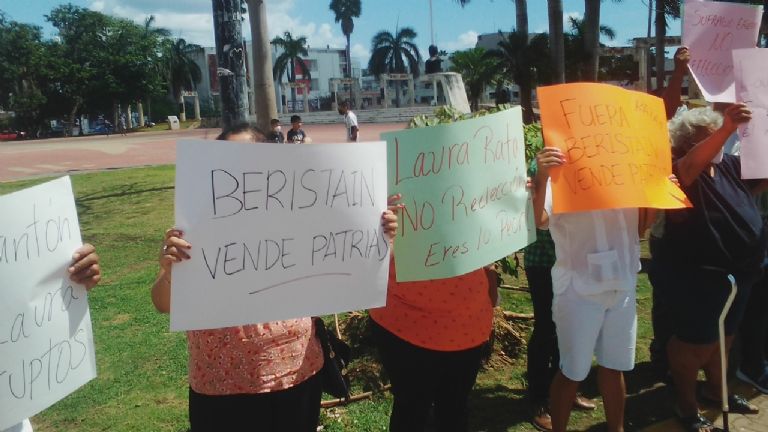 antón
Laura
UPTOS
BERISTAIN
VENDE PATRIAS
Laura Rata
NO Reelección
Eres lo Peor
FUERA RATA
BERISTAIN
VENDE PATRIA
SUFRAGIO EFECTIVO
NO
REELECCIÓN